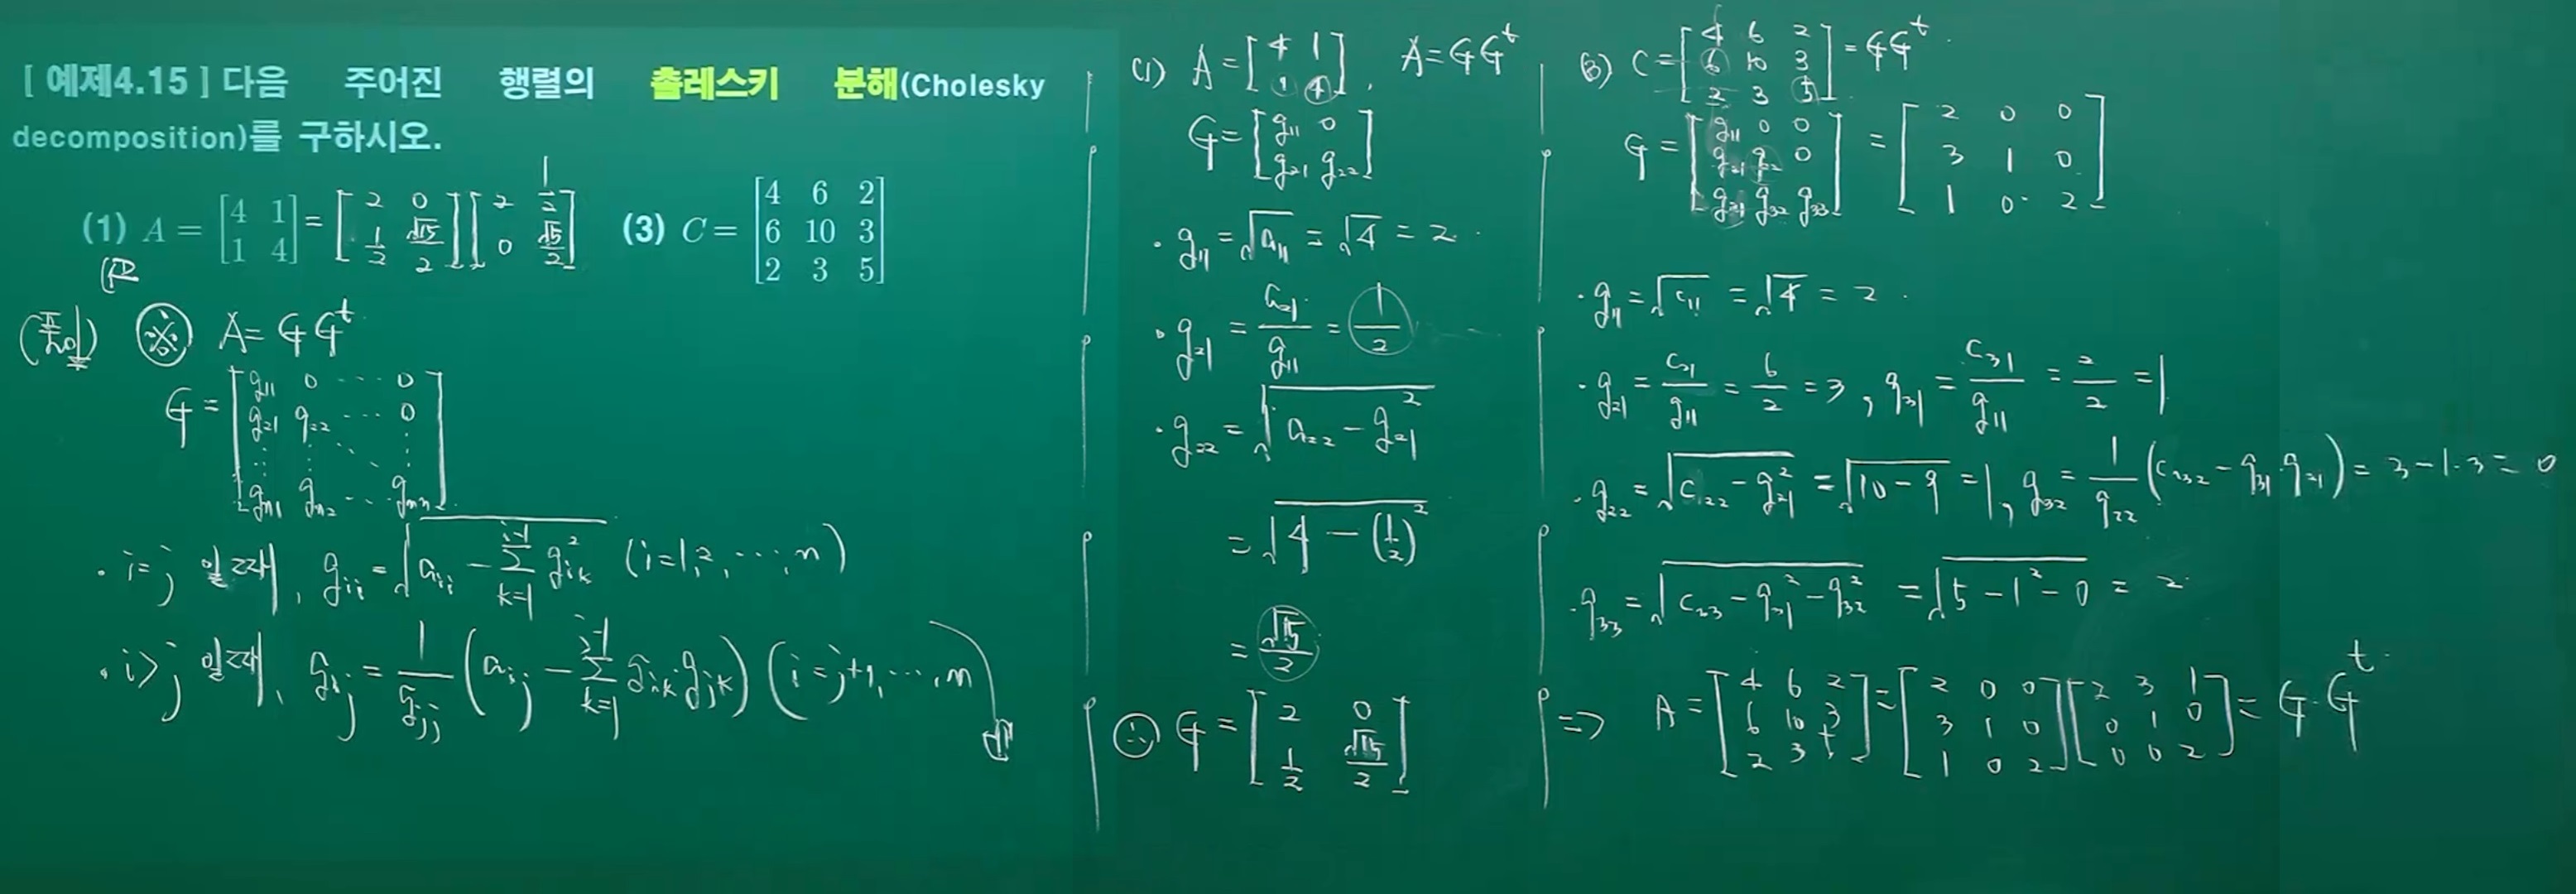 [ 예제4.15 ] 다음 주어진 행렬의 촐레스키 분해(Cholesky
decomposition)를 구하시오.
(1) A = [4 1; 1 4] = [2 0; 1/2 √15/2] [2 1/2; 0 √15/2] (3) C = [4 6 2; 6 10 3; 2 3 5]
(풀이) ※ A = G G^t
G = [g11 0 ⋯ 0; g21 g22 ⋯ 0; ⋮ ⋮ ⋱ ⋮; gn1 gn2 ⋯ gnn]
· i=j 일 때, gii = √(aii − Σ_{k=1}^{i-1} gik^2) (i=1,2,⋯,n)
· i>j 일 때, gij = 1/gjj (aij − Σ_{k=1}^{j-1} gik gjk) (i=j+1,⋯,n)
(1) A = [4 1; 1 4], A = G G^t
G = [g11 0; g21 g22]
· g11 = √a11 = √4 = 2.
· g21 = a21/g11 = 1/2
· g22 = √(a22 − g21^2)
= √(4 − (1/2)^2)
= √15/2
∴ G = [2 0; 1/2 √15/2]
(3) C = [4 6 2; 6 10 3; 2 3 5] = G G^t.
G = [g11 0 0; g21 g22 0; g31 g32 g33] = [2 0 0; 3 1 0; 1 0 2]
· g11 = √c11 = √4 = 2.
· g21 = c21/g11 = 6/2 = 3, g31 = c31/g11 = 2/2 = 1
· g22 = √(c22 − g21^2) = √(10−9) = 1, g32 = 1/g22 (c32 − g31·g21) = 3 − 1·3 = 0
· g33 = √(c33 − g31^2 − g32^2) = √(5 − 1^2 − 0) = 2.
⇒ A = [4 6 2; 6 10 3; 2 3 5] = [2 0 0; 3 1 0; 1 0 2] [2 3 1; 0 1 0; 0 0 2] = G·G^t.